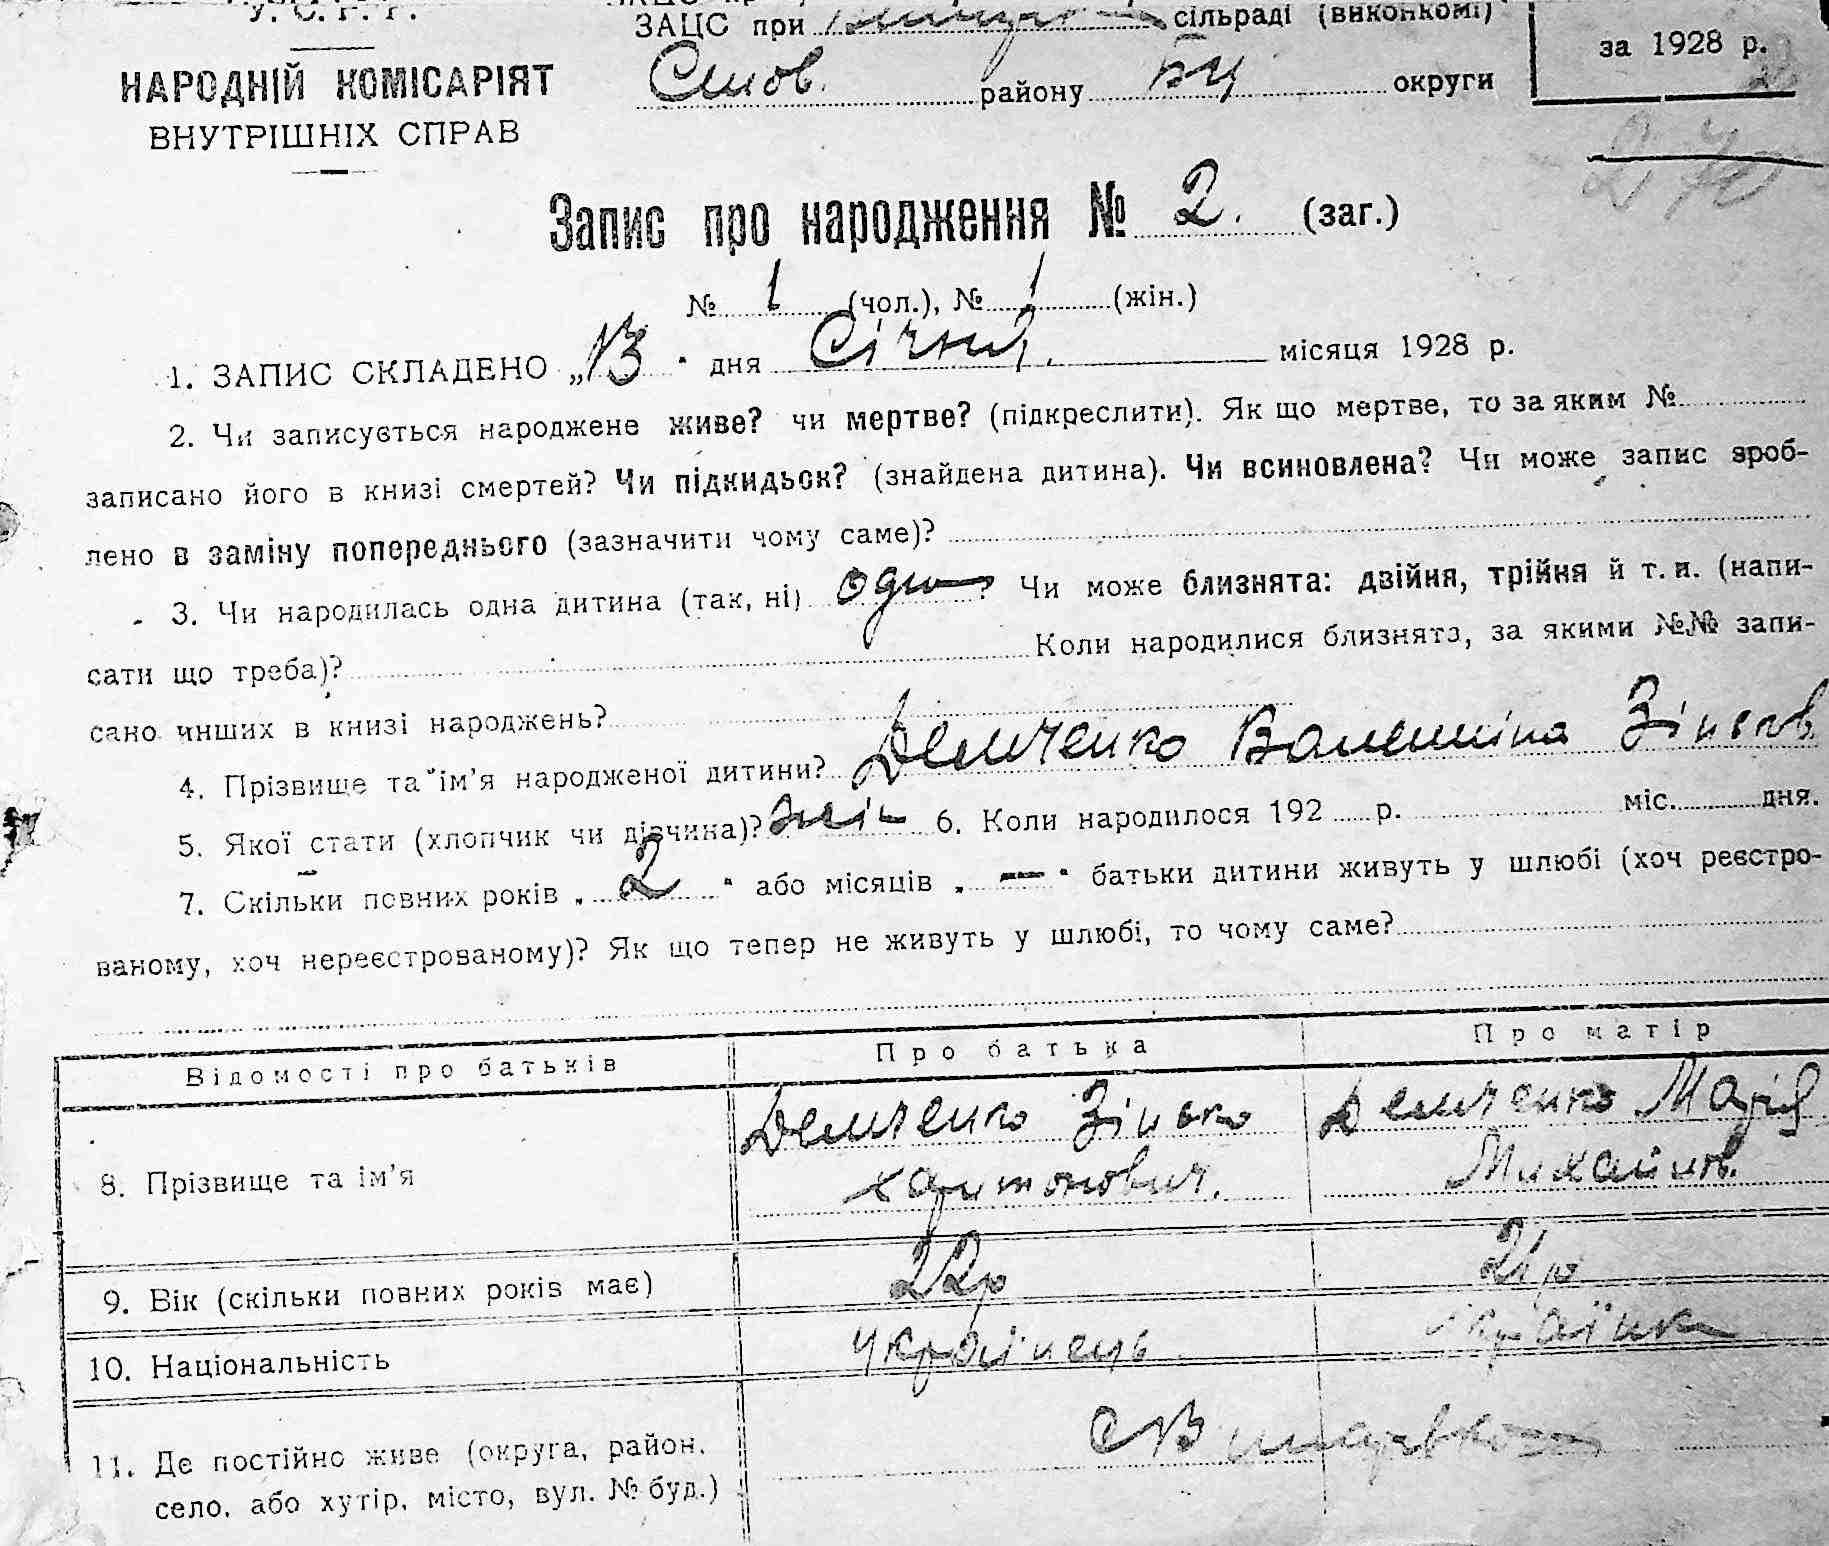 У. С. Р. Р.
НАРОДНІЙ КОМІСАРІЯТ
ВНУТРІШНІХ СПРАВ
ЗАЦС при сільраді (виконкомі)
районуБЦ округи
за 1928 р.
Запис про народження № 2. (заг.)
№ 1 (чол.), № 1 (жін.)
1. ЗАПИС СКЛАДЕНО „13" дня Січня місяця 1928 р.
2. Чи записується народжене живе? чи мертве? (підкреслити). Як що мертве, то за яким №
записано його в книзі смертей? Чи підкидьок? (знайдена дитина). Чи всиновлена? Чи може запис зроб-
лено в заміну попереднього (зазначити чому саме)?
3. Чи народилась одна дитина (так, ні) одно? Чи може близнята: двійня, трійня й т. и. (напи-
сати що треба)? Коли народилися близнята, за якими №№ запи-
сано инших в книзі народжень?
4. Прізвище та ім'я народженої дитини? Демченко Валентіна Зіньков
5. Якої стати (хлопчик чи дівчина)? жін 6. Коли народилося 192 р. міс. дня.
7. Скільки повних років „ 2 " або місяців „ — " батьки дитини живуть у шлюбі (хоч реєстро-
ваному, хоч нереєстрованому)? Як що тепер не живуть у шлюбі, то чому саме?
Відомості про батьків Про батька Про матір
8. Прізвище та ім'я Демченко Зінько Харитонович. Демченко Марія Михайлов.
9. Вік (скільки повних років має) 22р 21р
10. Національність Українець Українка
11. Де постійно живе (округа, район,
село, або хутір, місто, вул. № буд.)